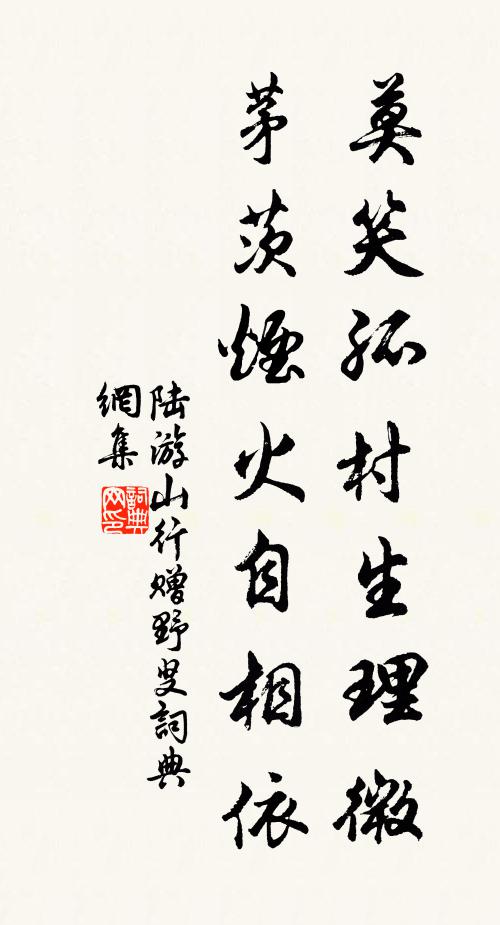 莫笑孤村生理微
茅茨煙火自相依
陆游山行赠野叟詞典
網集
詞典
网印